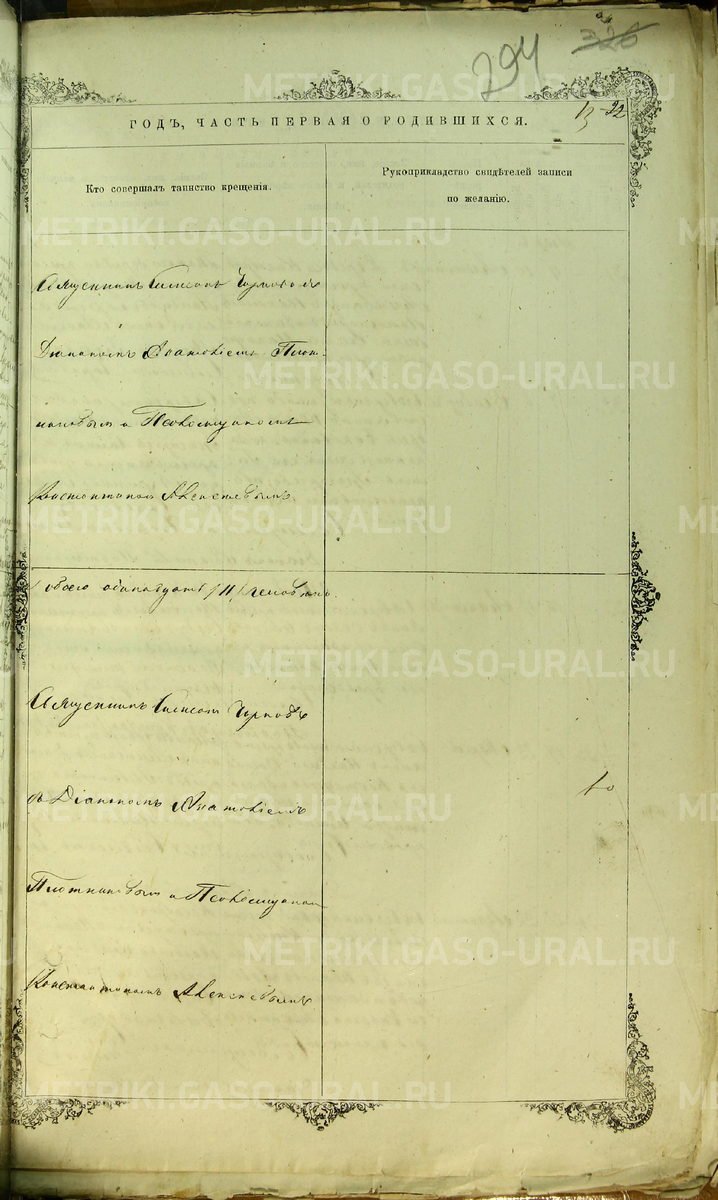 294 326
ГОДЪ, ЧАСТЬ ПЕРВАЯ О РОДИВШИХСЯ.
Кто совершалъ таинство крещенія.
Рукоприкладство свидѣтелей записи
по желанію.
Священникъ Симеонъ Чирковъ съ
Діакономъ Плот-
никовымъ и Псаломщикомъ
Константиномъ Алексѣевымъ
обоего одинадцать /11/ человѣкъ.
Священникъ Симеонъ Чирковъ
съ Діакономъ
Плотниковымъ и Псаломщикомъ
Константиномъ Алексѣевымъ
METRIKI.GASO-URAL.RU